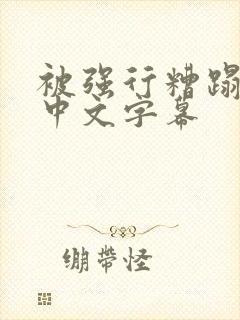 被强行糟蹋
中文字幕
绷带怪